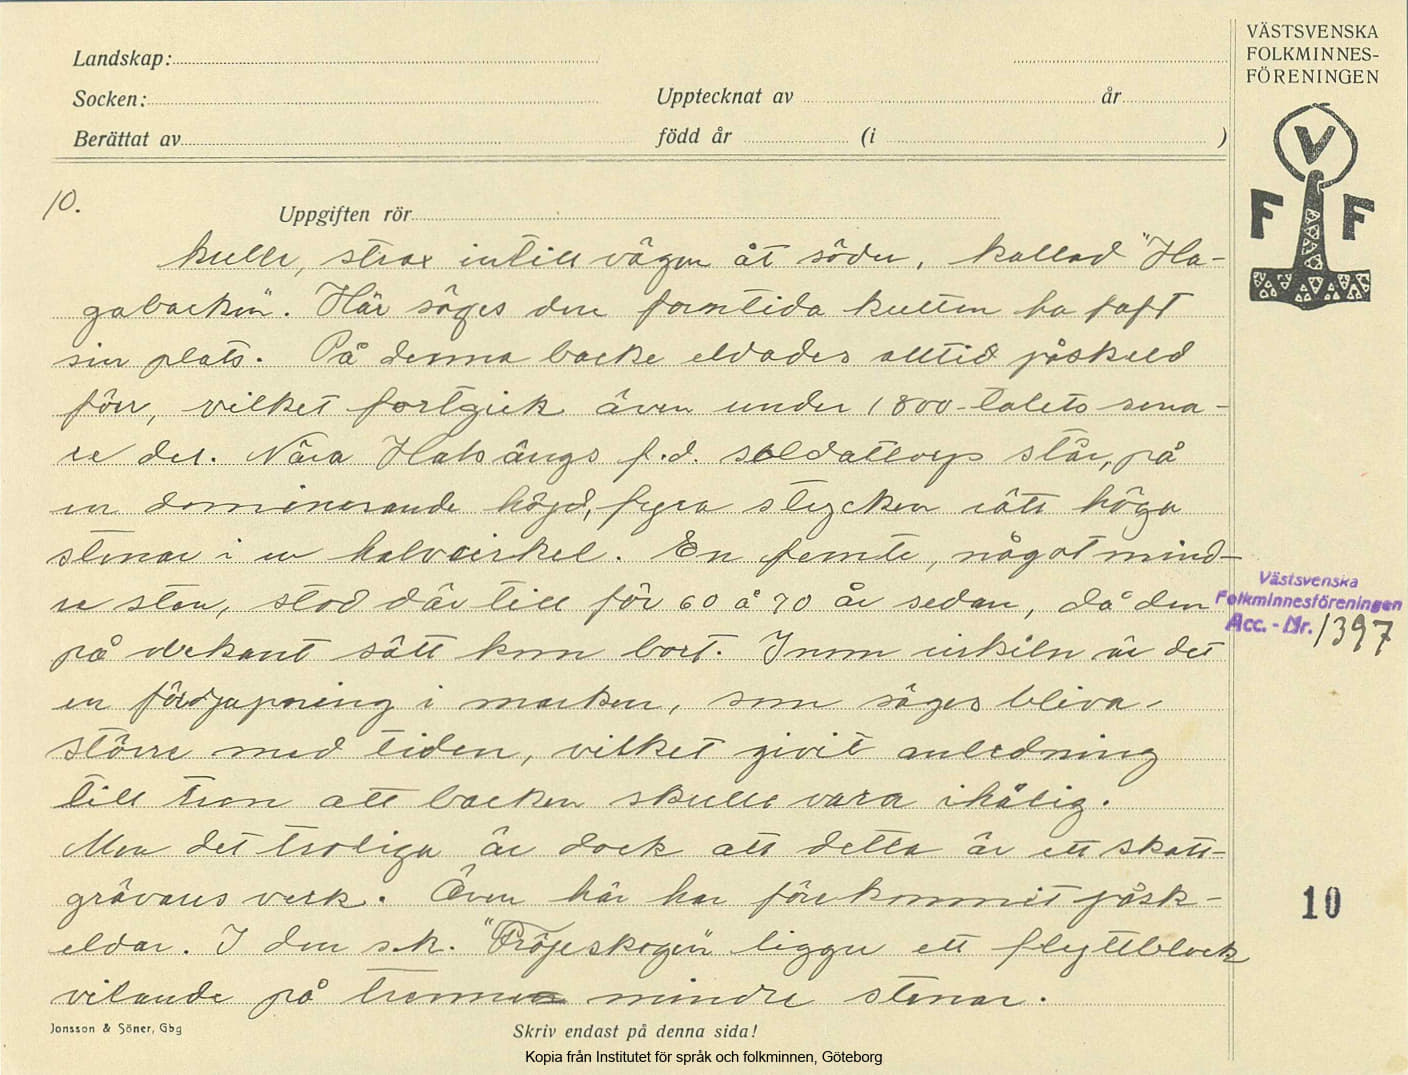 VÄSTSVENSKA
FOLKMINNES-
FÖRENINGEN
Landskap:
Socken:
Upptecknat av
år
Berättat av
född år
(i
)
V
F F
10.
Uppgiften rör
kulle, strax intill vägen åt söder, kallad "Ha-
gabacken". Här säges den forntida kulten ha haft
sin plats. På denna backe eldades alltid påskeld
förr, vilket fortgick även under 1800-talets sena-
re del. Nära Halsängs f.d. soldattorp står, på
en dominerande höjd, fyra stycken rätt höga
stenar i en halvcirkel. En femte, något mind-
re sten, stod där till för 60 à 70 år sedan, då den
på okänt sätt kom bort. Inom cirkeln är det
en fördjupning i marken, som säges bliva
större med tiden, vilket givit anledning
till tron att backen skulle vara ihålig.
Men det troliga är dock att detta är ett skatt-
grävares verk. Även här har förekommit påsk-
eldar. I den s.k. "Fröjeskogen" ligger ett flyttblock
vilande på trenne mindre stenar.
Västsvenska
Folkminnesföreningen
Acc. - Nr. 1397
10
Jonsson & Söner, Gbg
Skriv endast på denna sida!
Kopia från Institutet för språk och folkminnen, Göteborg